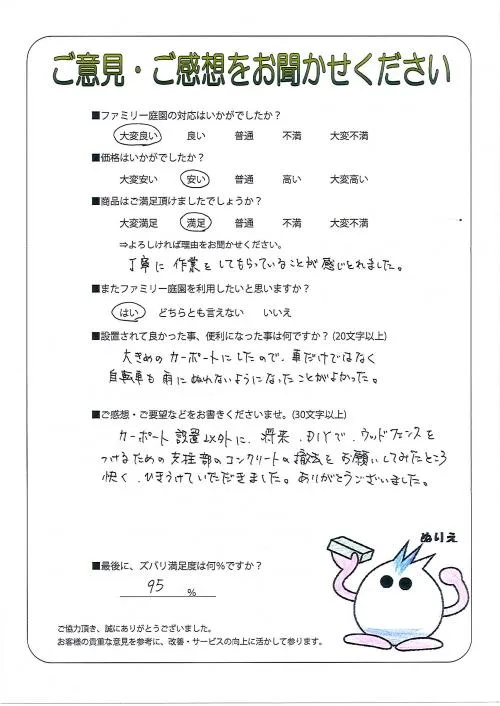 ご意見・ご感想をお聞かせください
■ファミリー庭園の対応はいかがでしたか？
大変良い 良い 普通 不満 大変不満
■価格はいかがでしたか？
大変安い 安い 普通 高い 大変高い
■商品はご満足頂けましたでしょうか？
大変満足 満足 普通 不満 大変不満
⇒よろしければ理由をお聞かせください。
丁寧に作業をしてもらっていることが感じとれました。
■またファミリー庭園を利用したいと思いますか？
はい どちらとも言えない いいえ
■設置されて良かった事、便利になった事は何ですか？(20文字以上)
大きめのカーポートにしたので、車だけではなく
自転車も雨にぬれないようになったことがよかった。
■ご感想・ご要望などをお書きくださいませ。(30文字以上)
カーポート設置以外に、将来、DIYで、ウッドフェンスを
つけるための支柱部のコンクリートの撤去をお願いしてみたところ
快く、ひきうけていただきました。ありがとうございました。
ぬりえ
■最後に、ズバリ満足度は何％ですか？
95 %
ご協力頂き、誠にありがとうございました。
お客様の貴重な意見を参考に、改善・サービスの向上に活かして参ります。